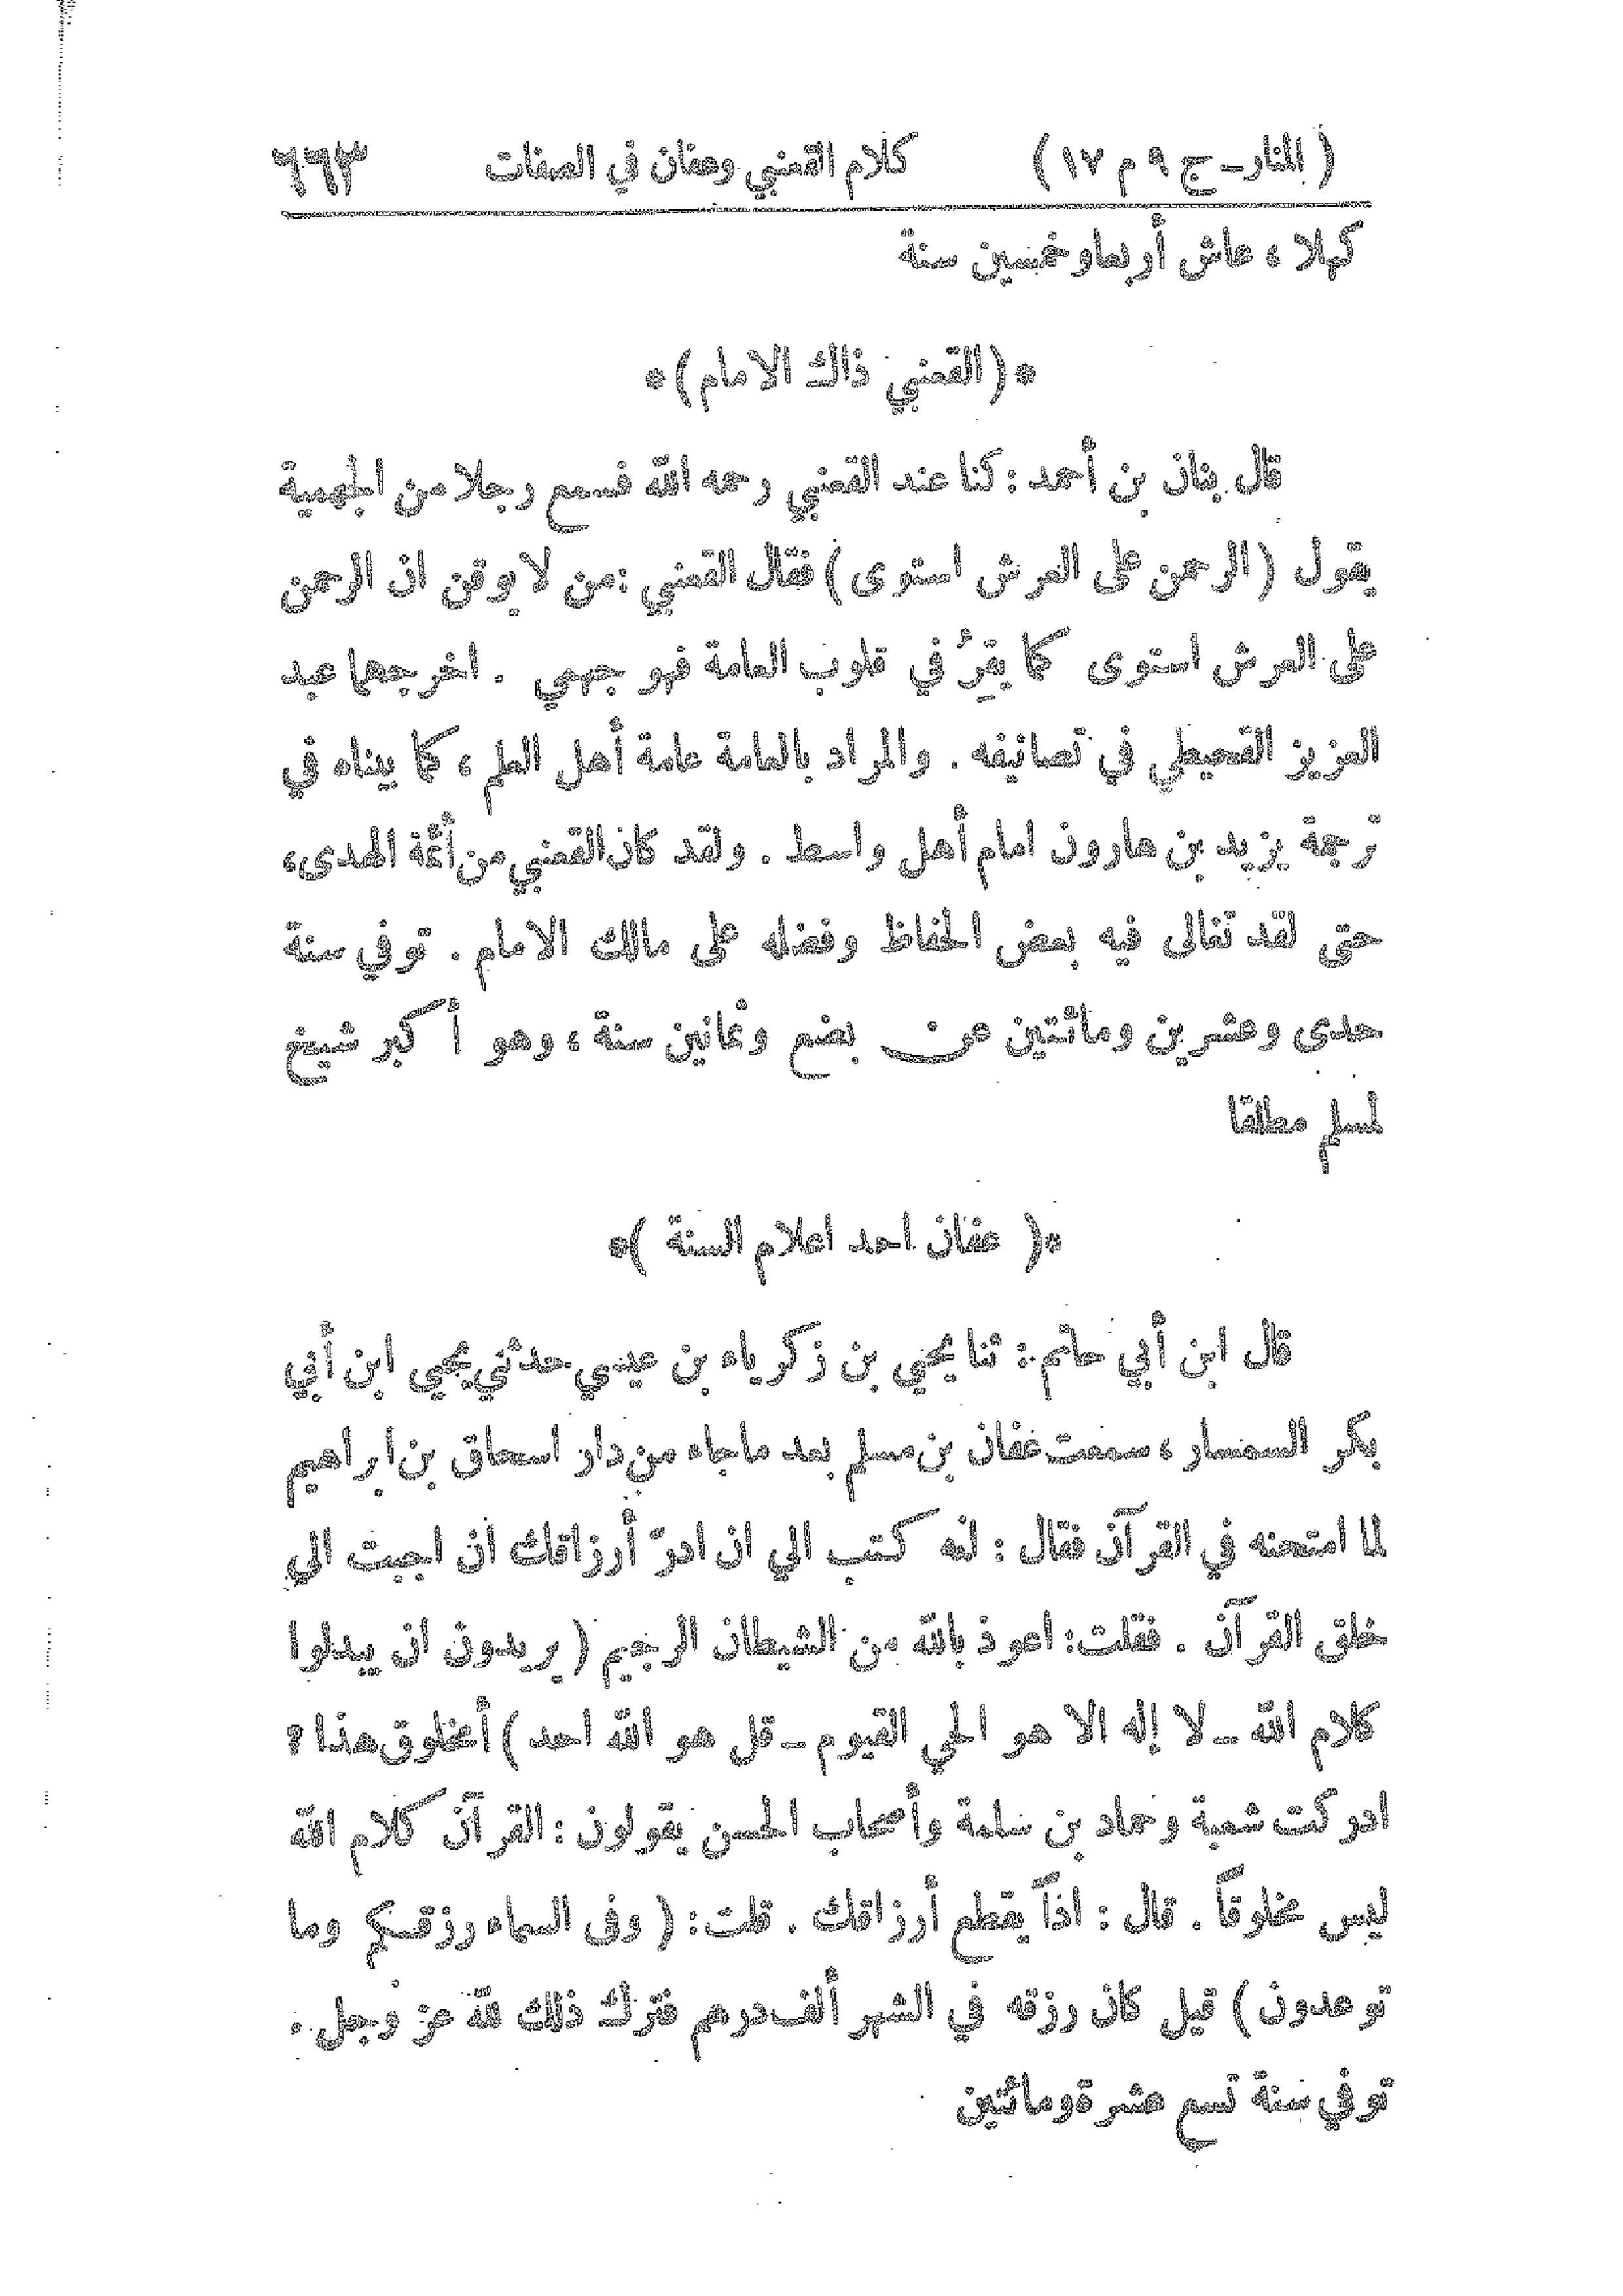 ( المنار ــ ج ٩ م ١٧ ) كلام القعنبي وعفان في الصفات ٦٦٣
كهلا ، عاش أربعا وخمسين سنة
*( القعنبي ذاك الامام )*
قال بنان بن أحمد : كنا عند القعنبي رحمه الله فسمع رجلا من الجهمية
يقول ( الرحمن على العرش استوى ) فقال القعنبي : من لا يوقن ان الرحمن
على العرش استوى كما يقرُّ في قلوب العامة فهو جهمي . اخرجهما عبد
العزيز القحيطي في تصانيفه . والمراد بالعامة عامة أهل العلم ، كما بيناه في
ترجمة يزيد بن هارون امام أهل واسط . ولقد كان القعنبي من أئمة الهدى ،
حتى لقد تغالى فيه بعض الحفاظ وفضله على مالك الامام . توفي سنة
حدى وعشرين ومائتين عن بضع وثمانين سنة ، وهو أكبر شيخ
لمسلم مطلقا
*( عفان احد اعلام السنة )*
قال ابن أبي حاتم : ثنا يحيي بن زكرياء بن عيسي حدثني يحيي ابن أبي
بكر السمسار ، سمعت عفان بن مسلم بعد ما جاء من دار اسحاق بن ابراهيم
لما امتحنه في القرآن فقال : انه كتب الي ان ادرّ أرزاقك ان اجبت الي
خلق القرآن . فقلت : اعوذ بالله من الشيطان الرجيم ( يريدون ان يبدلوا
كلام الله ــ لا إله الا هو الحي القيوم ــ قل هو الله احد ) أمخلوق هذا ؟
ادركت شعبة وحماد بن سلمة وأصحاب الحسن يقولون : القرآن كلام الله
ليس مخلوقاً . قال : اذاً يقطع أرزاقك . قلت : ( وفى السماء رزقكم وما
توعدون ) قيل كان رزقه في الشهر ألف درهم فترك ذلك لله عز وجل .
توفي سنة تسع عشرة ومائتين